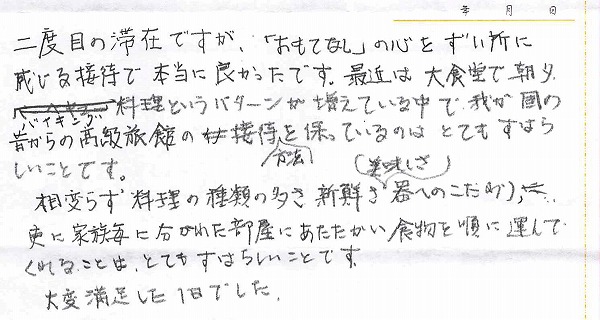 年 月 日
二度目の滞在ですが、「おもてなし」の心をずい所に
感じる接待で本当に良かったです。最近は大食堂で朝夕
バイキング料理というパターンが増えている中で、我が国の
昔からの高級旅館の接待方法を保っているのはとてもすばら
しいことです。
相変らず料理の種類の多さ新鮮さ(美味しさ)器へのこだわり、
更に家族毎に分かれた部屋にあたたかい食物を順に運んで
くれることは、とてもすばらしいことです。
大変満足した1日でした。